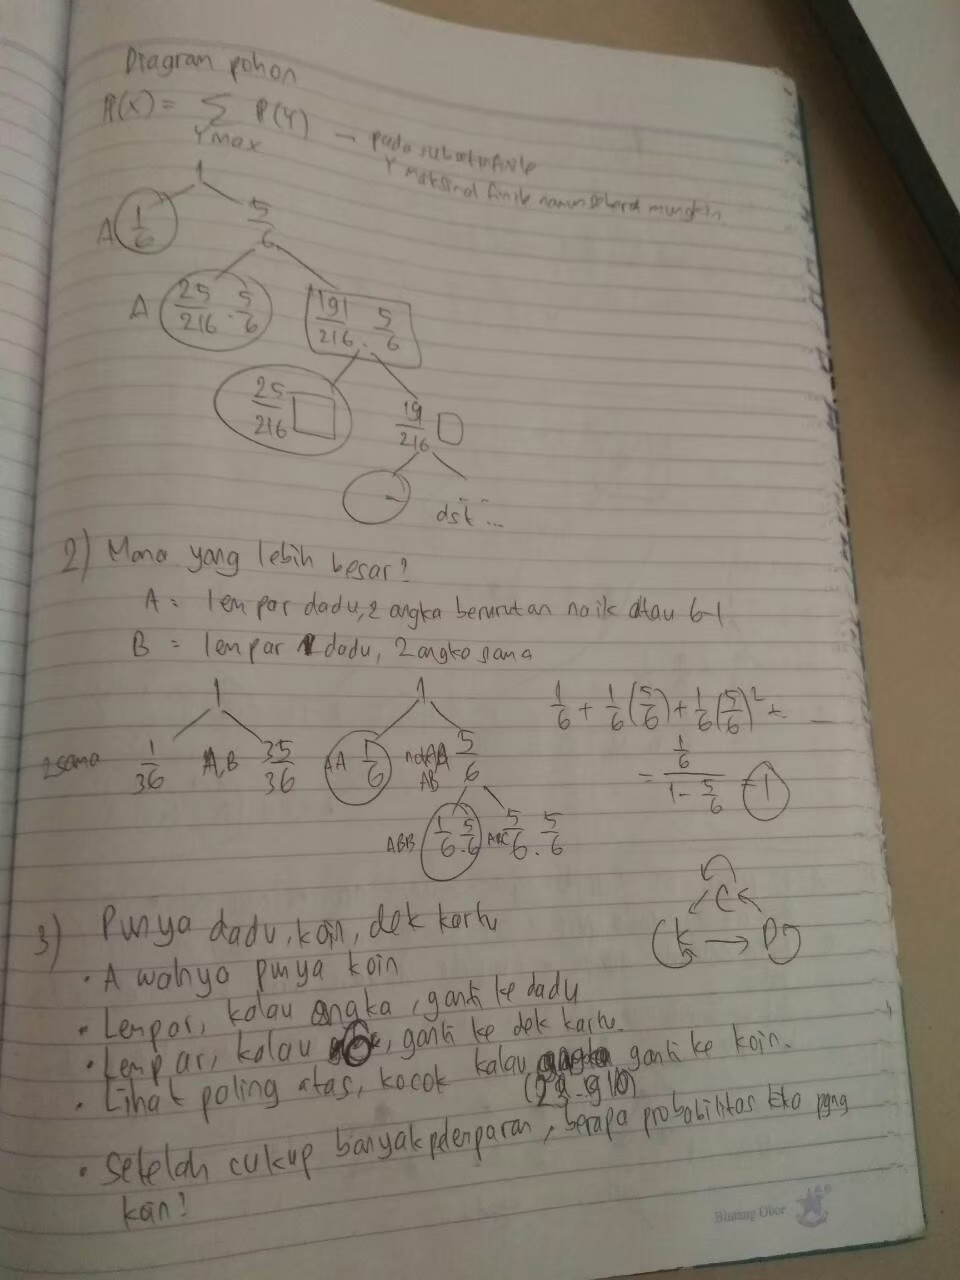 Diagram pohon
P(X) = Σ P(Y) — pada
Y max
Y maksimal finik namun mungkin
1
A 1/6 5/6
A 25/216 · 5/6 191/216 · 5/6
25/216 19/216
dst ...
2) Mana yang lebih besar?
A = lempar dadu, 2 angka berurutan naik atau 6-1
B = lempar dadu, 2 angka sama
1 1 1/6 + 1/6 (5/6) + 1/6 (5/6)² + ...
2 sama 1/36 A,B 35/36 AA 1/6 AB 5/6 = 1/6 / 1 - 5/6 = 1
ABB 1/6 · 5/6 ABC 5/6 · 5/6
C
K → D
3) Punya dadu, koin, dek kartu
• Awalnya punya koin
• Lempar, kalau angka, ganti ke dadu
• Lempar, kalau 6, ganti ke dek kartu.
• Lihat paling atas, kocok kalau ganti ke koin.
(23-910)
• Setelah cukup banyak pelemparan, berapa probabilitas kita pgng
koin?
Bintang Obor